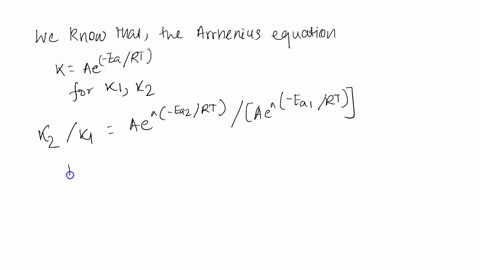 We know that, the Arrhenius equation
K = Ae^(-Ea/RT)
for K1, K2
K2 / K1 = Ae^(-Ea2/RT) / [Ae^(-Ea1/RT)]